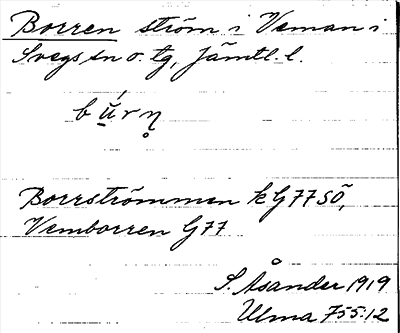 Borren ström i Veman i
Svegs sn o. tg, Jämtl. l.
Borrströmmen k G77SÖ,
Vemborren G77
S. Åsander 1919
Ulma 755:12